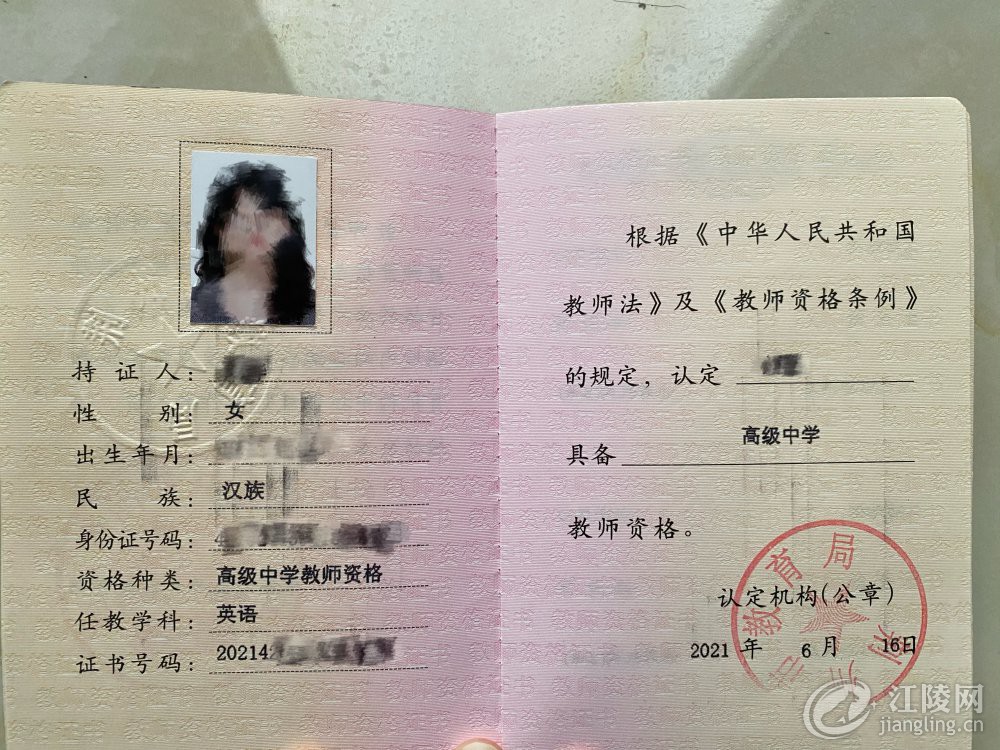 持证人：
性别：女
出生年月：
民族：汉族
身份证号码：4
资格种类：高级中学教师资格
任教学科：英语
证书号码：20214
根据《中华人民共和国
教师法》及《教师资格条例》
的规定，认定
具备 高级中学
教师资格。
认定机构(公章)
2021 年 6 月 16日
教育局
江陵网
jiangling.cn